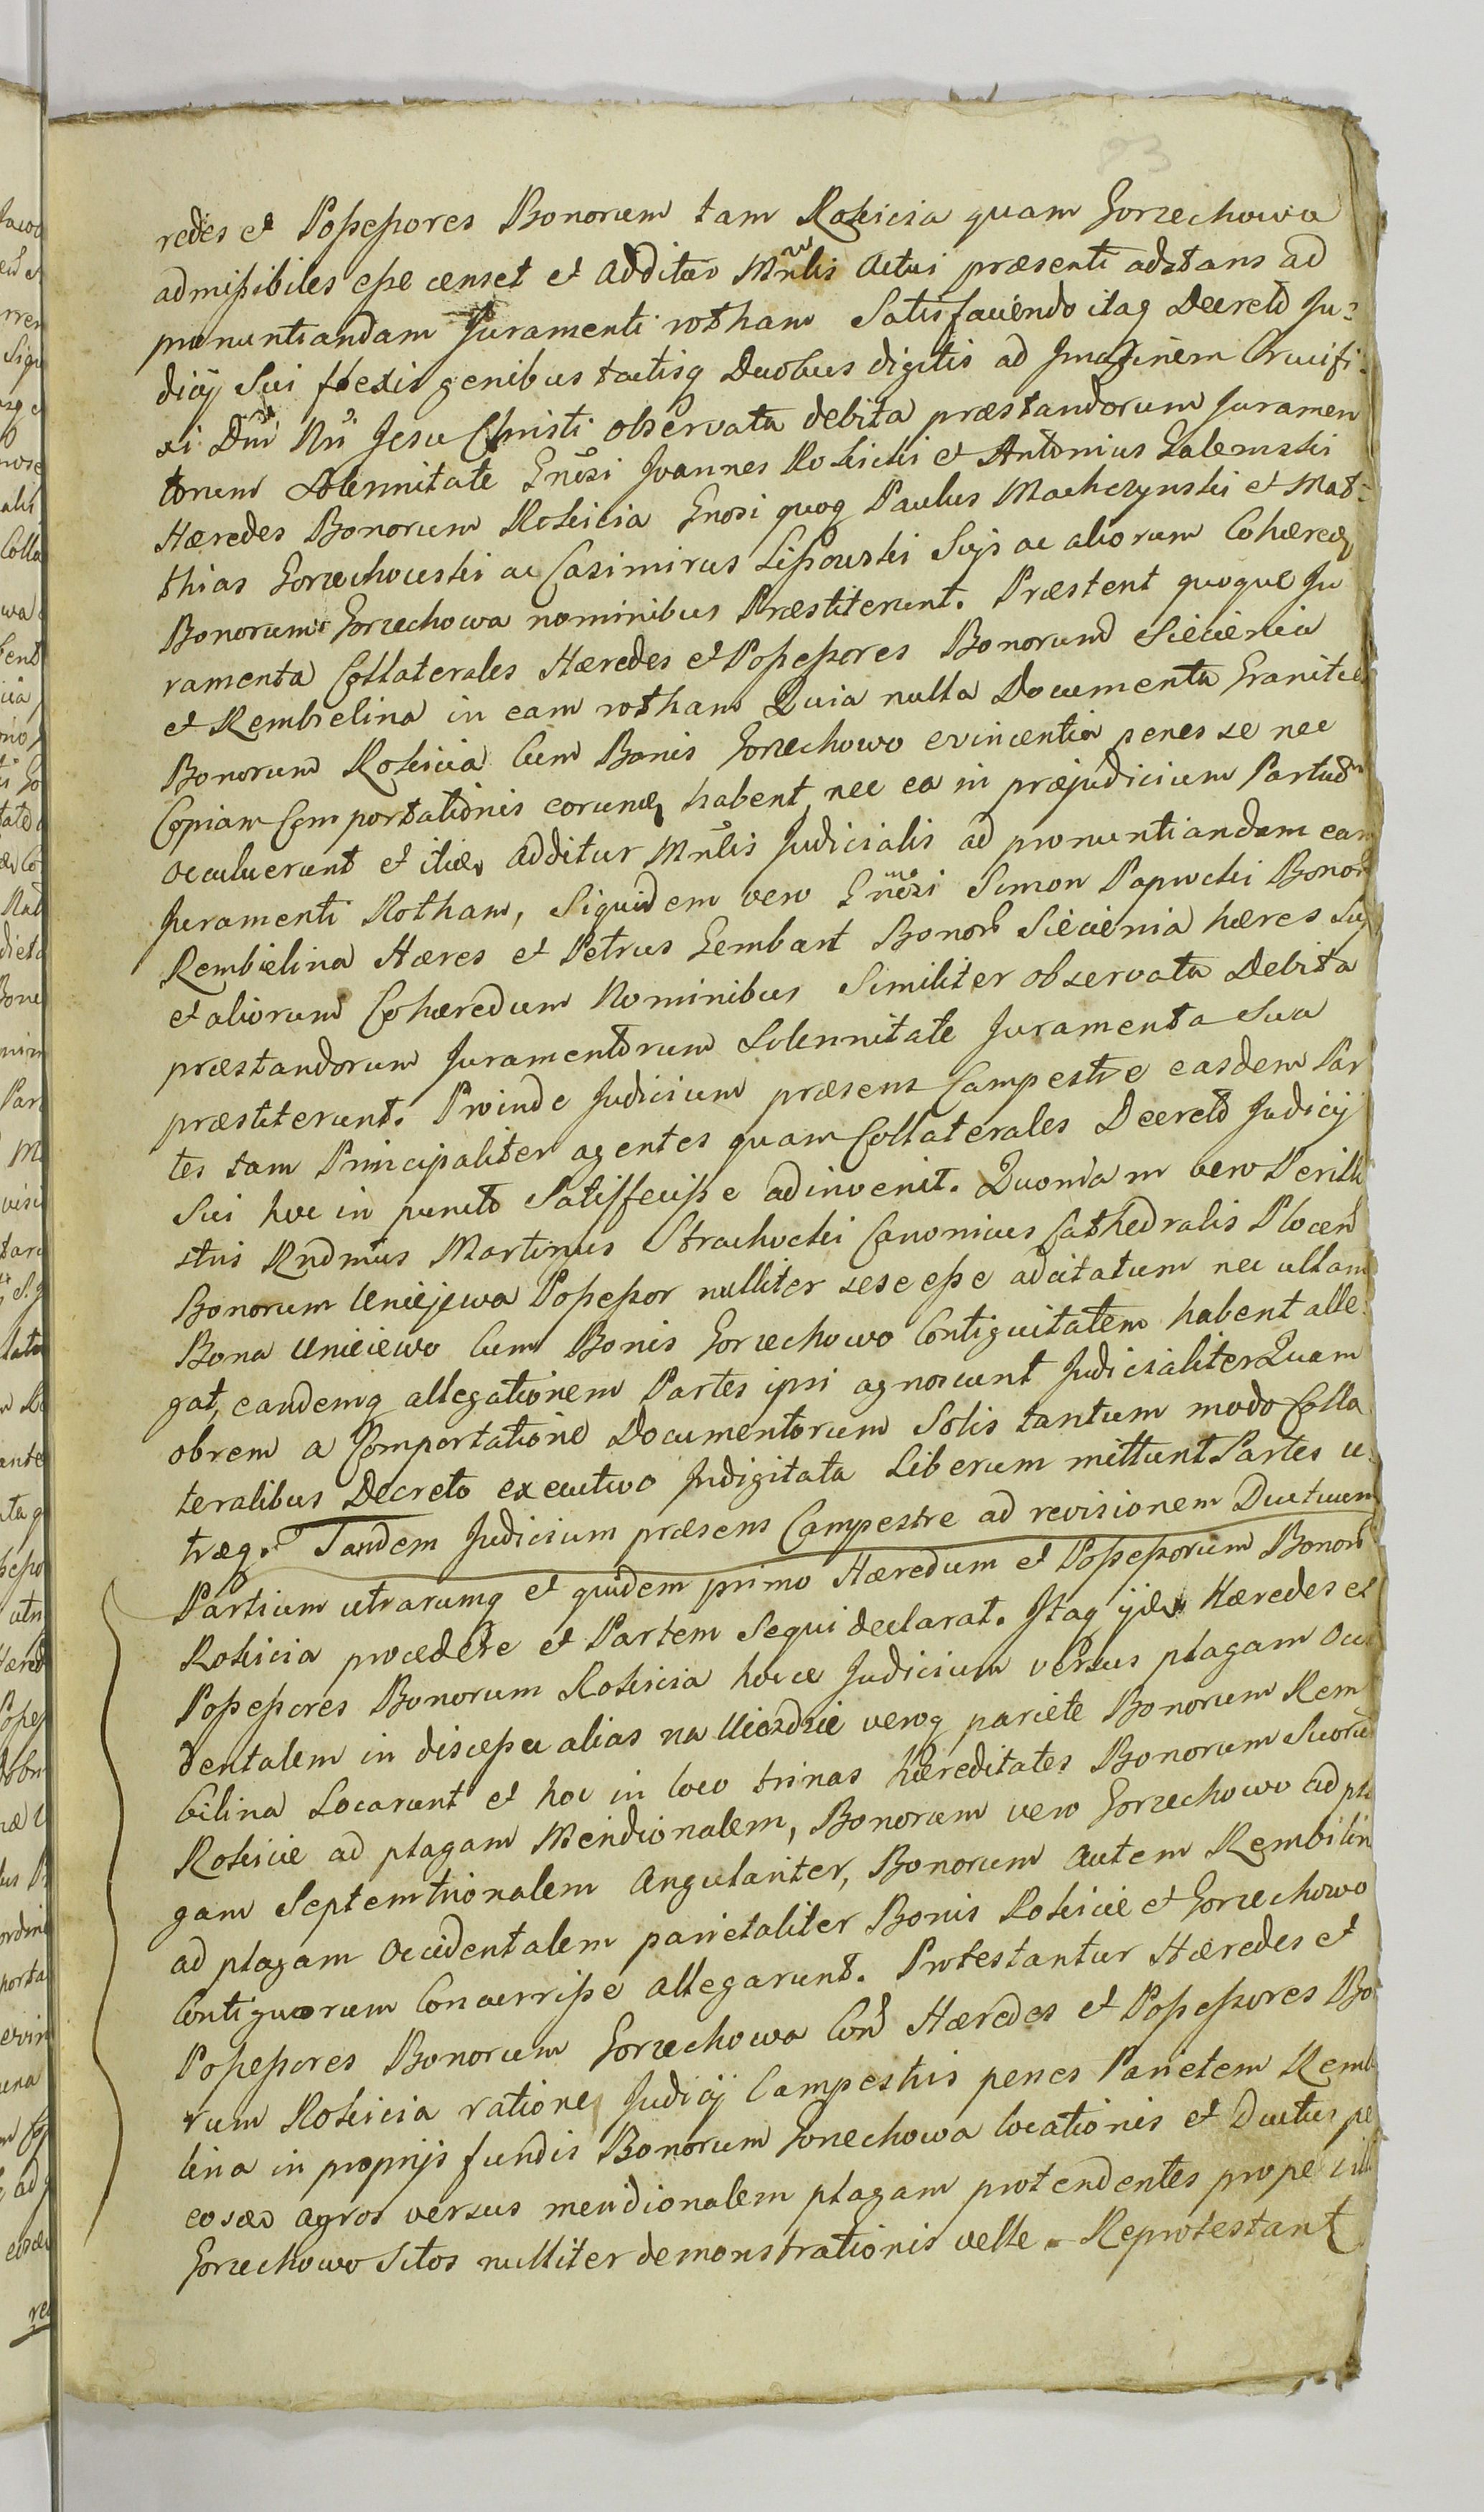 83
redes et Possessores Bonorum tam Rokicia quam Gorzechowa
admissibiles esse censet et additus Mnlis Actui præsenti adstans ad
pronuntiandam Juramenti rotham Satisfaciendo itaq Decreto Ju:
dicÿ Sui flexis genibus tactisq Duobus digitis ad Imaginem Crucifi:
xi Dni Nri Jesu Christi observata debita præstandorum Juramen
torum Solennitate Gnosi Joannes Rokicki et Antonius Galemski
Hæredes Bonorum Rokicia Gnosi quoq Paulus Machczynski et Mat:
thias Gorzechowski ac Casimirus Lissowski Suis ac aliorum Cohæred
Bonorum Gorzechowa nominibus Præstiterunt. Præstent quoque Ju
ramenta Collaterales Hæredes et Possessores Bonorum Siecienia
et Rembielina in eam rotham Quia nulla Documenta Granities
Bonorum Rokicia Cum Bonis Gorzechowo evincentia penes se nec
Copiam Comportationis eorund habent, nec ea in præjudicium Partium
occuluerunt et additur Mnlis Judicialis ad pronuntiandam eam
Juramenti Rotham, Siquidem vero Gnosi Simon Papiocki Bonor
Rembielina Hæres et Petrus Gembart Bonor Siecienia hæres Suis
et aliorum Cohæredum Nominibus Similiter observata Debita
præstandorum Juramentorum Solennitate Juramenta Sua
præstiterunt. Proinde Judicium præsens Campestre easdem Par
tes tam Principaliter agentes quam Collaterales Decreto Judicÿ
Sui hoc in puncto Satisfecisse adinvenit. Quoniam vero Perillu
stris Rndmus Martinus Strachocki Canonicus Cathedralis Plocen
Bonorum Uniejewa Possessor nulliter sese esse adcitatum nec ullam
Bona Unieiewo Cum Bonis Gorzechowo Contiguitatem habent alle:
gat, eandemq allegationem Partes ipsi agnoscunt Judicialiter Quam
obrem a Comportatione Documentorum Solis tantum modo Colla
teralibus Decreto executivo Indigitata Liberum mittunt Partes u:
træq. Tandem Judicium præsens Campestre ad revisionem Ductuum
Partium utrarumq et quidem primo Hæredum et Possessorum Bonor
Rokicia procedere et Partem Sequi declarat. Itaq Hæredes et
Possessores Bonorum Rokicia hocce Judicium versus plagam Occi
dentalem in discessu alias na Uiezdzie veroq pariete Bonorum Rem
bilina Locarunt et hoc in loco trinas hæreditates Bonorum Suorum
Rokicie ad plagam Meridionalem, Bonorum vero Gorzechowo ad pla
gam Septemtrionalem Angulariter, Bonorum autem Rembilin
ad plagam Occidentalem parietaliter Bonis Rokicie et Gorzechowo
Contiguorum Concurrisse allegarunt. Protestantur Hæredes et
Possessores Bonorum Gorzechowa Con Hæredes et Possessores Bo
rum Rokicia ratione Judicÿ Campestris penes Parietem Remb
lina in proprÿs fundis Bonorum Gorzechowa locationis et Ductus pe
eosd agros versus meridionalem plagam protendentes prope
Gorzechowo Sitos nulliter demonstrationis velle. Reprotestant